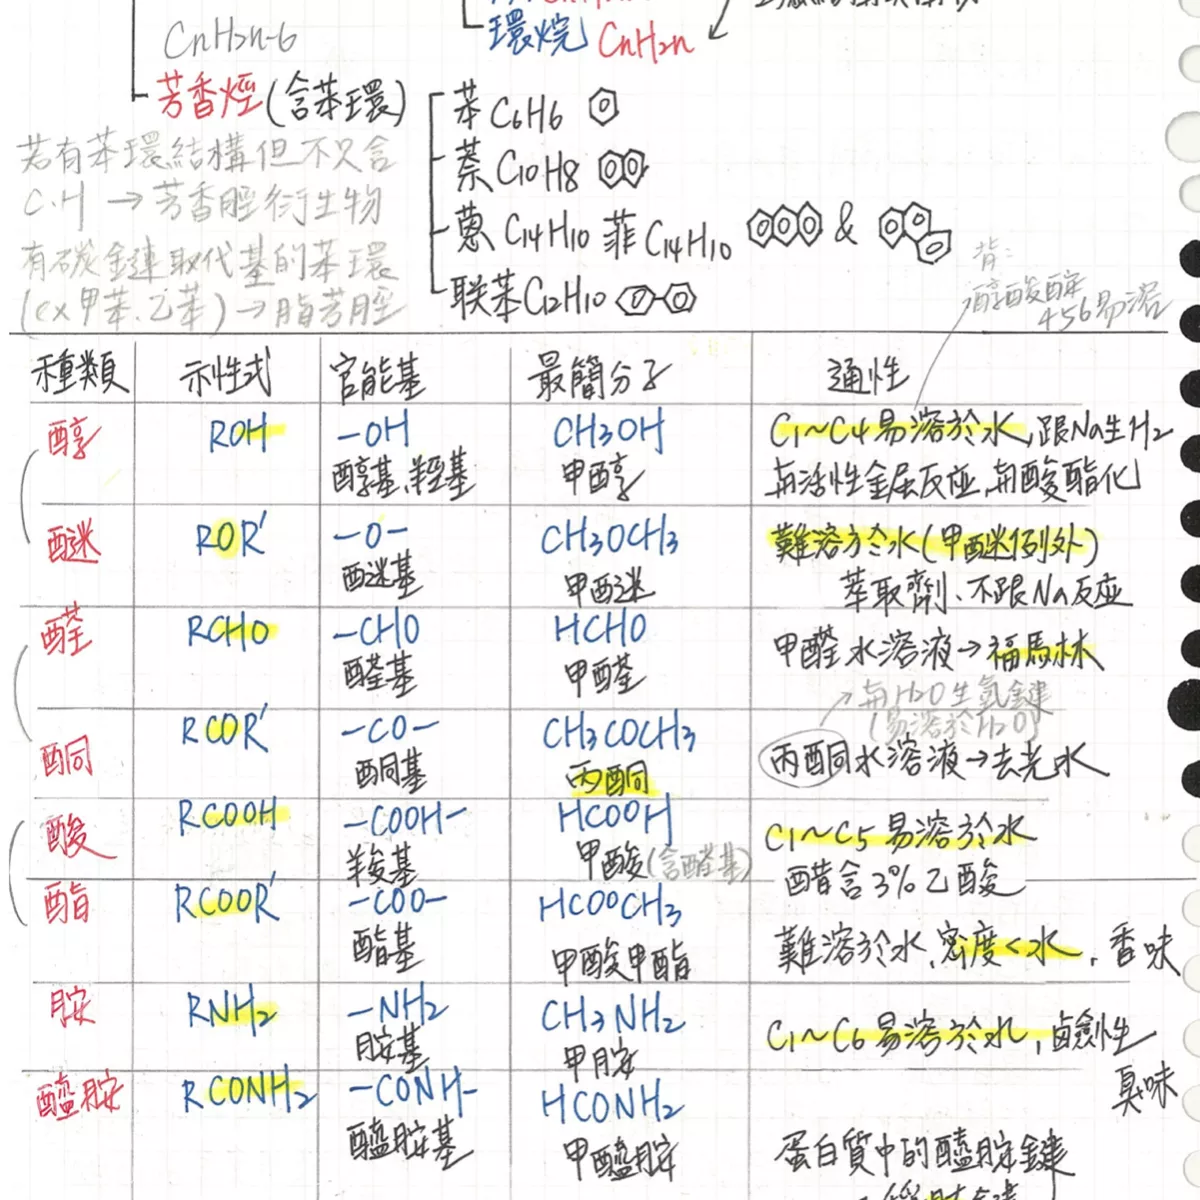 CnH2n-6
環烷 CnH2n
芳香烴(含苯環)
苯 C6H6
萘 C10H8
蒽 C14H10 菲 C14H10 &
联苯 C12H10
若有苯環結構但不只含
C.H → 芳香烴衍生物
有碳鏈取代基的苯環
(ex甲苯.乙苯)→脂芳烴
背:
醇酸胺
456易溶
種類 示性式 官能基 最簡分子 通性
醇 ROH -OH CH3OH C1~C4易溶於水,跟Na生H2
醇基、羥基 甲醇 與活性金属反应,與酸酯化
醚 ROR' -O- CH3OCH3 難溶於水(甲醚例外)
醚基 甲醚 萃取劑、不跟Na反应
醛 RCHO -CHO HCHO 甲醛水溶液→福馬林
醛基 甲醛
與H2O生氫鍵
(易溶於H2O)
酮 RCOR' -CO- CH3COCH3 丙酮水溶液→去光水
酮基 丙酮
酸 RCOOH -COOH- HCOOH C1~C5易溶於水
羧基 甲酸(含醛基) 醋含3%乙酸
酯 RCOOR' -COO- HCOOCH3 難溶於水,密度<水,香味
酯基 甲酸甲酯
胺 RNH2 -NH2 CH3NH2 C1~C6易溶於水,鹵鹼性
胺基 甲胺 臭味
醯胺 RCONH2 -CONH- HCONH2
醯胺基 甲醯胺 蛋白質中的醯胺鍵